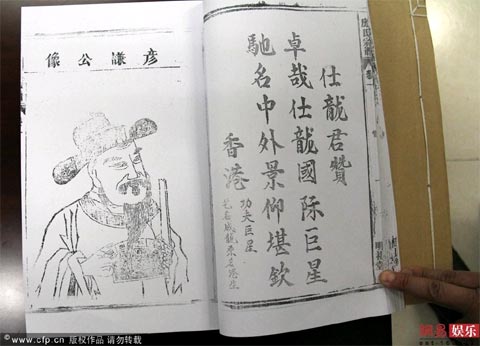 仕龍君贊
卓哉仕龍國际巨星
馳名中外景仰堪欽
香港
功夫巨星
艺名成龍 名港生
彥謙公像
©www.cfp.cn 版权作品 请勿转载
網易 娱乐